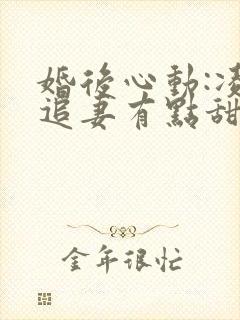 婚後心動:凌
追妻有點甜
金年很忙